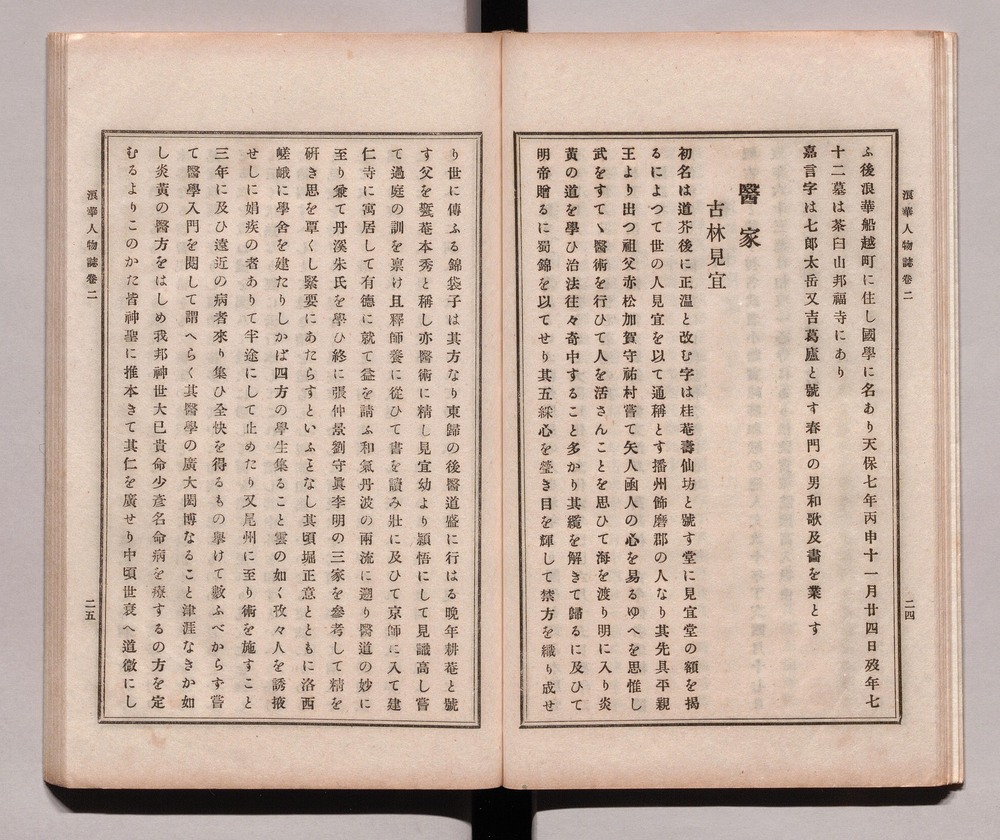 浪華人物誌卷二
二四
ふ後浪華船越町に住し國學に名あり天保七年丙申十一月廿四日歿年七
十二墓は茶臼山邦福寺にあり
嘉言字は七郎太岳又吉葛廬と號す春門の男和歌及書を業とす
醫家
古林見宜
初名は道芥後に正温と改む字は桂菴壽仙坊と號す堂に見宜堂の額を揭
るによつて世の人見宜を以て通稱とす播州飾磨郡の人なり其先具平親
王より出つ祖父赤松加賀守祐村嘗て矢人凾人の心を易るゆへを思惟し
武をすてゝ醫術を行ひて人を活さんことを思ひて海を渡り明に入り炎
黃の道を學ひ治法往々奇中すること多かり其纜を解きて歸るに及ひて
明帝贈るに蜀錦を以てせり其五綵心を瑩き目を輝して禁方を織り成せ
り世に傳ふる錦袋子は其方なり東歸の後醫道盛に行はる晩年耕菴と號
す父を鷖菴本秀と稱し亦醫術に精し見宜幼より穎悟にして見識高し嘗
て過庭の訓を禀け且釋師養に從ひて書を讀み壯に及ひて京師に入て建
仁寺に寓居して有德に就て益を請ふ和氣丹波の兩流に遡り醫道の妙に
至り兼て丹溪朱氏を學ひ終に張仲景劉守眞李明の三家を參考して精を
硏き思を覃くし緊要にあたらすといふとなし其頃堀正意とともに洛西
嵯峨に學舍を建たりしかば四方の學生集ること雲の如く孜々人を誘掖
せしに娟疾の者ありて半途にして止めたり又尾州に至り術を施すこと
三年に及ひ遠近の病者來り集ひ全快を得るもの擧けて數ふべからす嘗
て醫學入門を閱して謂へらく其醫學の廣大閎博なること津涯なきか如
し炎黃の醫方をはしめ我邦神世大已貴命少彥名命病を療するの方を定
むるよりこのかた皆神聖に推本きて其仁を廣せり中頃世衰へ道微にし
浪華人物誌卷二
二五